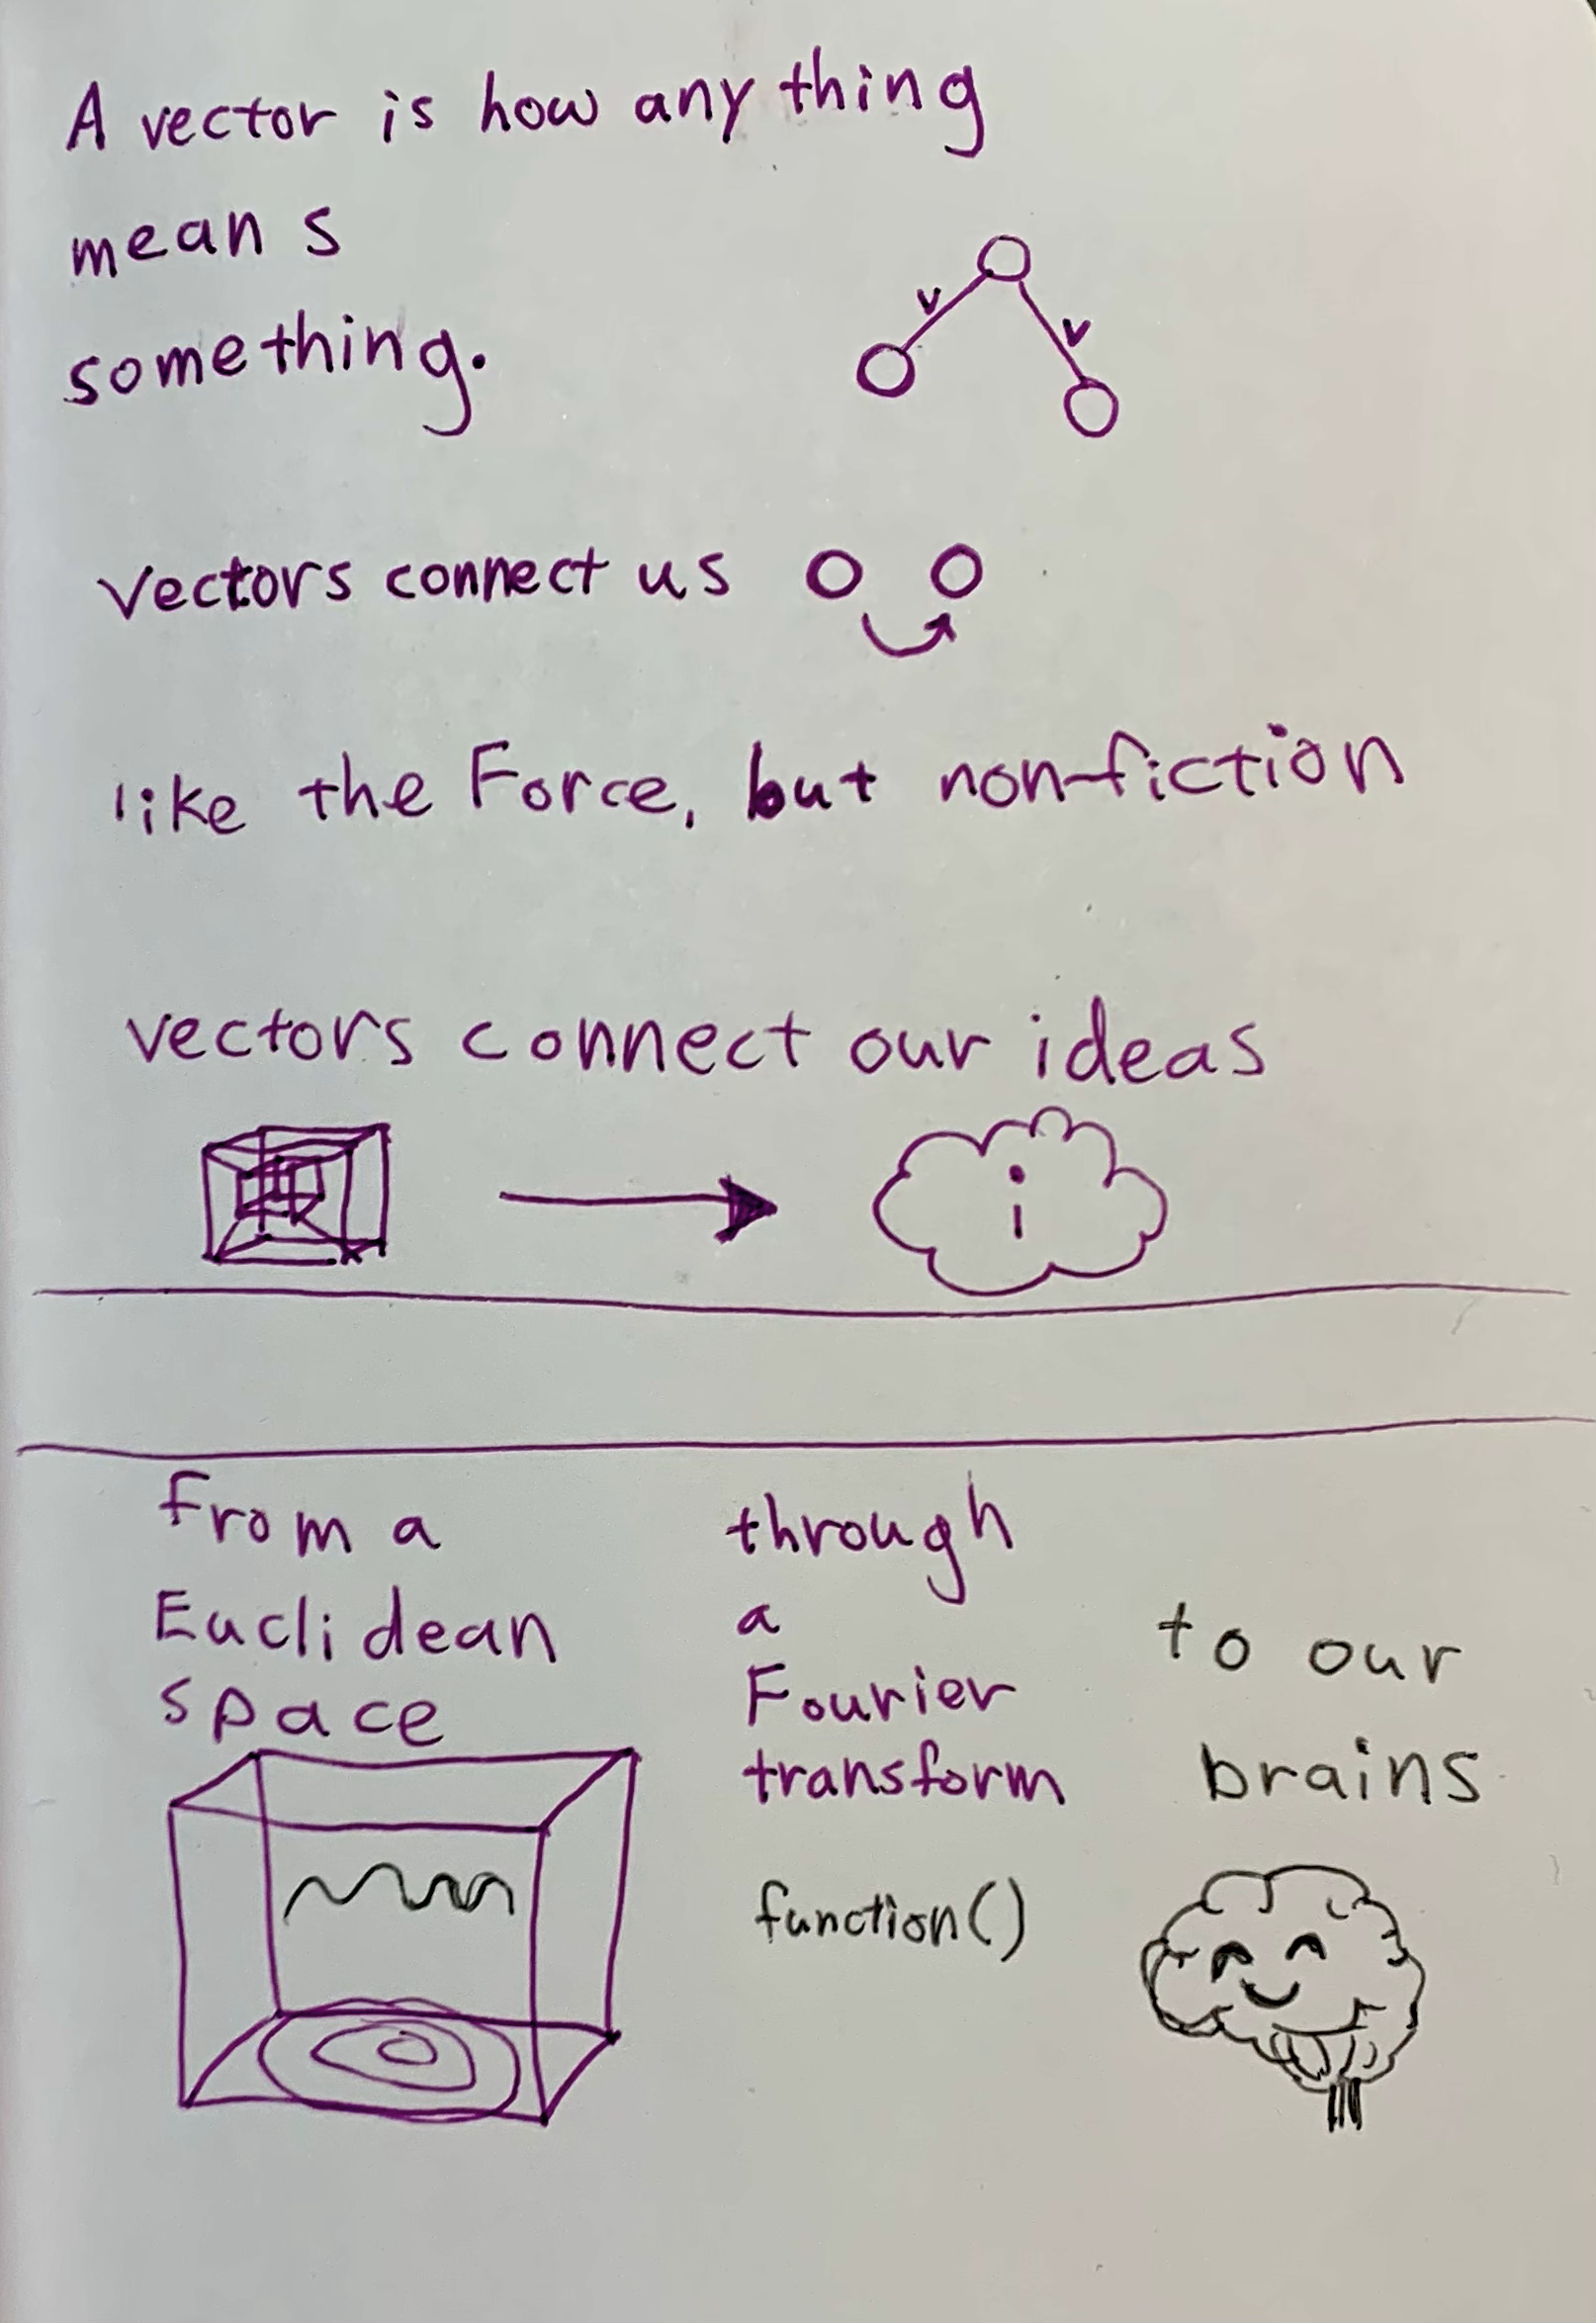 A vector is how any thing
means
something.
v
v
vectors connect us
like the Force, but non-fiction
vectors connect our ideas
i
from a
Euclidean
space
through
a
Fourier
transform
function()
to our
brains